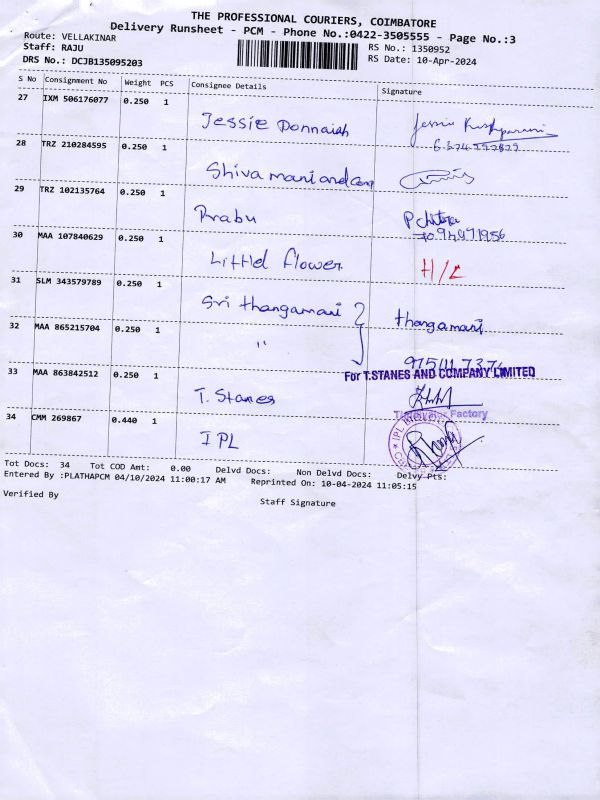 THE PROFESSIONAL COURIERS, COIMBATORE
Delivery Runsheet - PCM - Phone No.:0422-3505555 - Page No.:3
Route: VELLAKINAR
RS No.: 1350952
Staff: RAJU
RS Date: 10-Apr-2024
DRS No.: DCJB135095203
S No Consignment No Weight PCS Consignee Details Signature
27 IXM 506176077 0.250 1 Jessie Donnaiah Jessie
28 TRZ 210284595 0.250 1 Shiva mani and com
29 TRZ 102135764 0.250 1 Prabu P chitra
30 MAA 107840629 0.250 1 Littel flower H/C
31 SLM 343579789 0.250 1 Sri thangamani thangamani
32 MAA 865215704 0.250 1 "
For T.STANES AND COMPANY LIMITED
33 MAA 863842512 0.250 1 T. Stanes
Factory
34 CMM 269867 0.440 1 IPL
IPL
Tot Docs: 34 Tot COD Amt: 0.00 Delvd Docs: Non Delvd Docs: Delvy Pts:
Entered By :PLATHAPCM 04/10/2024 11:00:17 AM Reprinted On: 10-04-2024 11:05:15
Verified By
Staff Signature